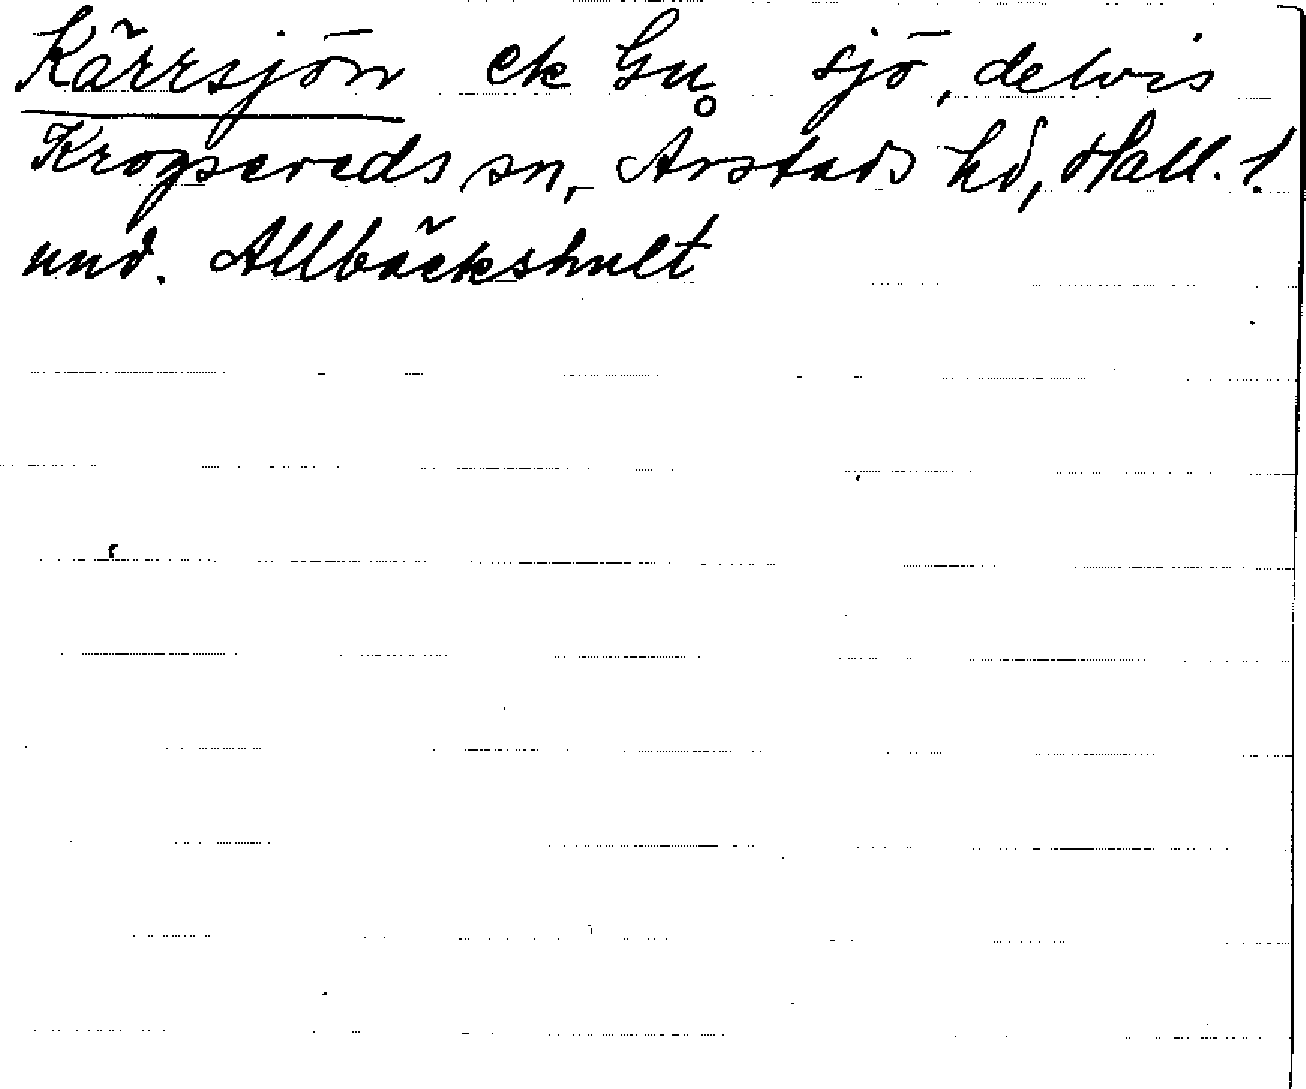 Kärrsjön ek Gu sjö, delvis
Krogsereds sn, Årstads hd, Hall. l.
und. Allbäckshult